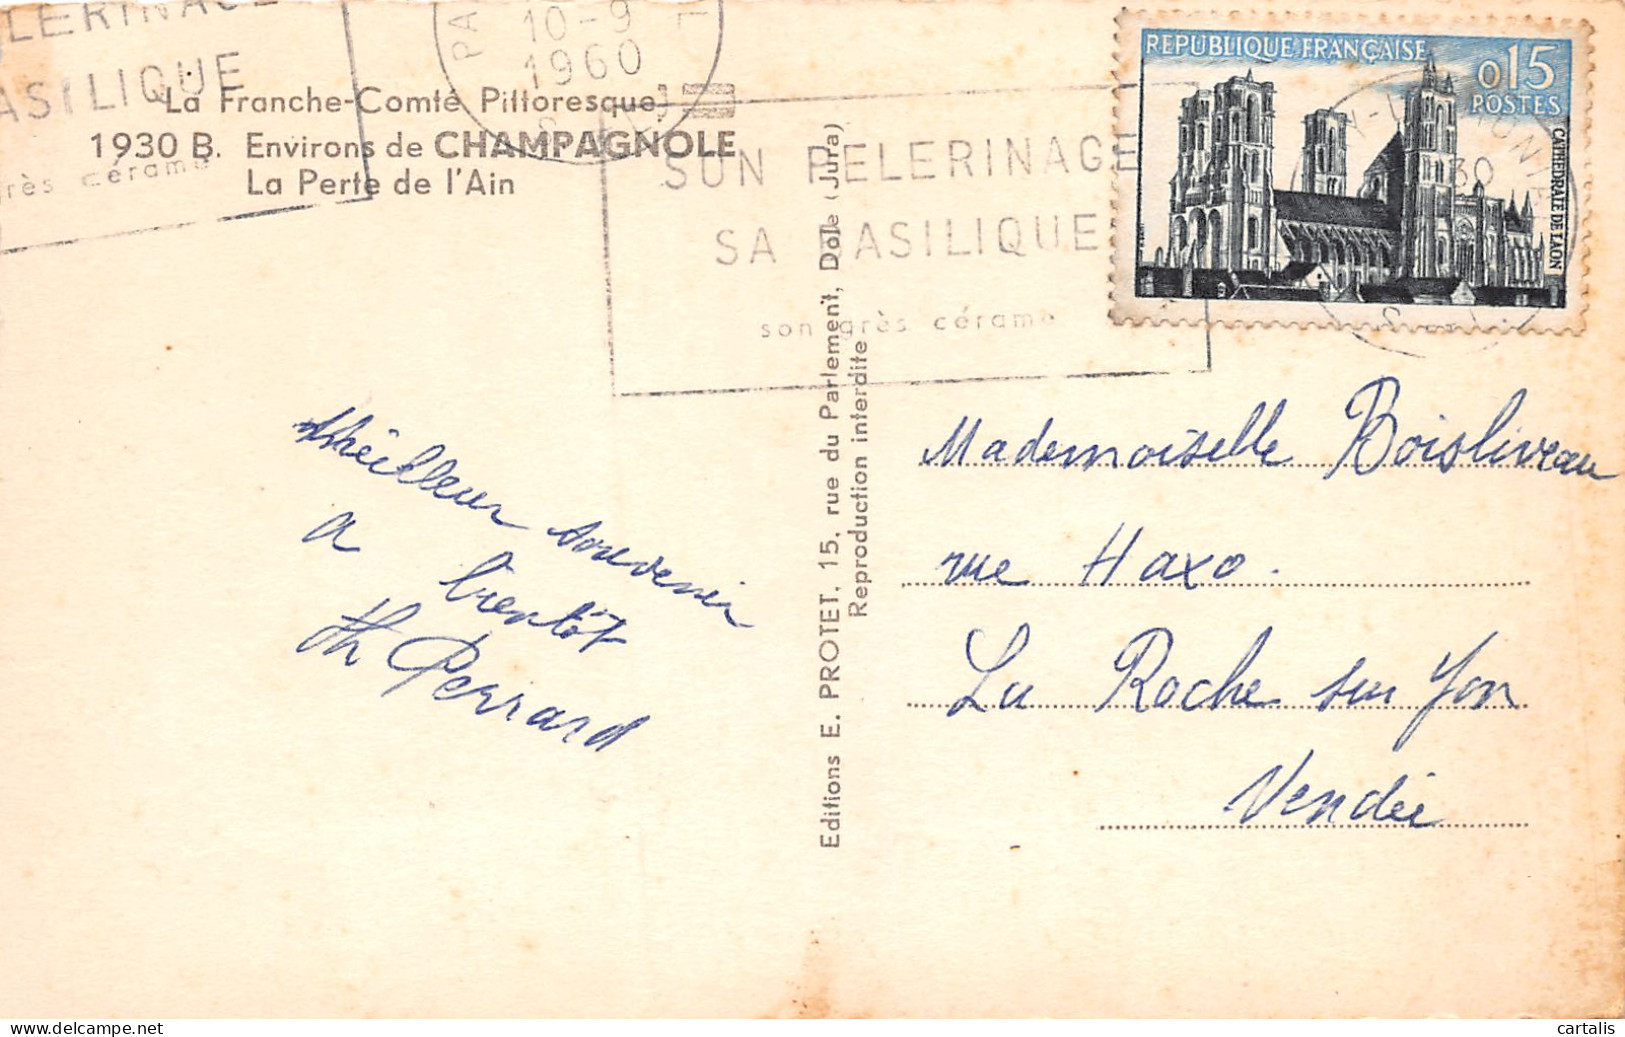 PELERINAGE
BASILIQUE
grès cérame
10-9
1960
La Franche-Comté Pittoresque
1930 B. Environs de CHAMPAGNOLE
La Perte de l'Ain
SON PELERINAGE
SA BASILIQUE
son grès cérame
REPUBLIQUE FRANÇAISE
0,15
POSTES
CATHEDRALE DE LAON
Meilleur souvenir
a bientôt
Th Perrard
Editions E. PROTET, 15, rue du Parlement, Dole (Jura)
Reproduction interdite
Mademoiselle Boisliveau
rue Haxo.
La Roche sur Yon
Vendée
delcampe.net
cartalis